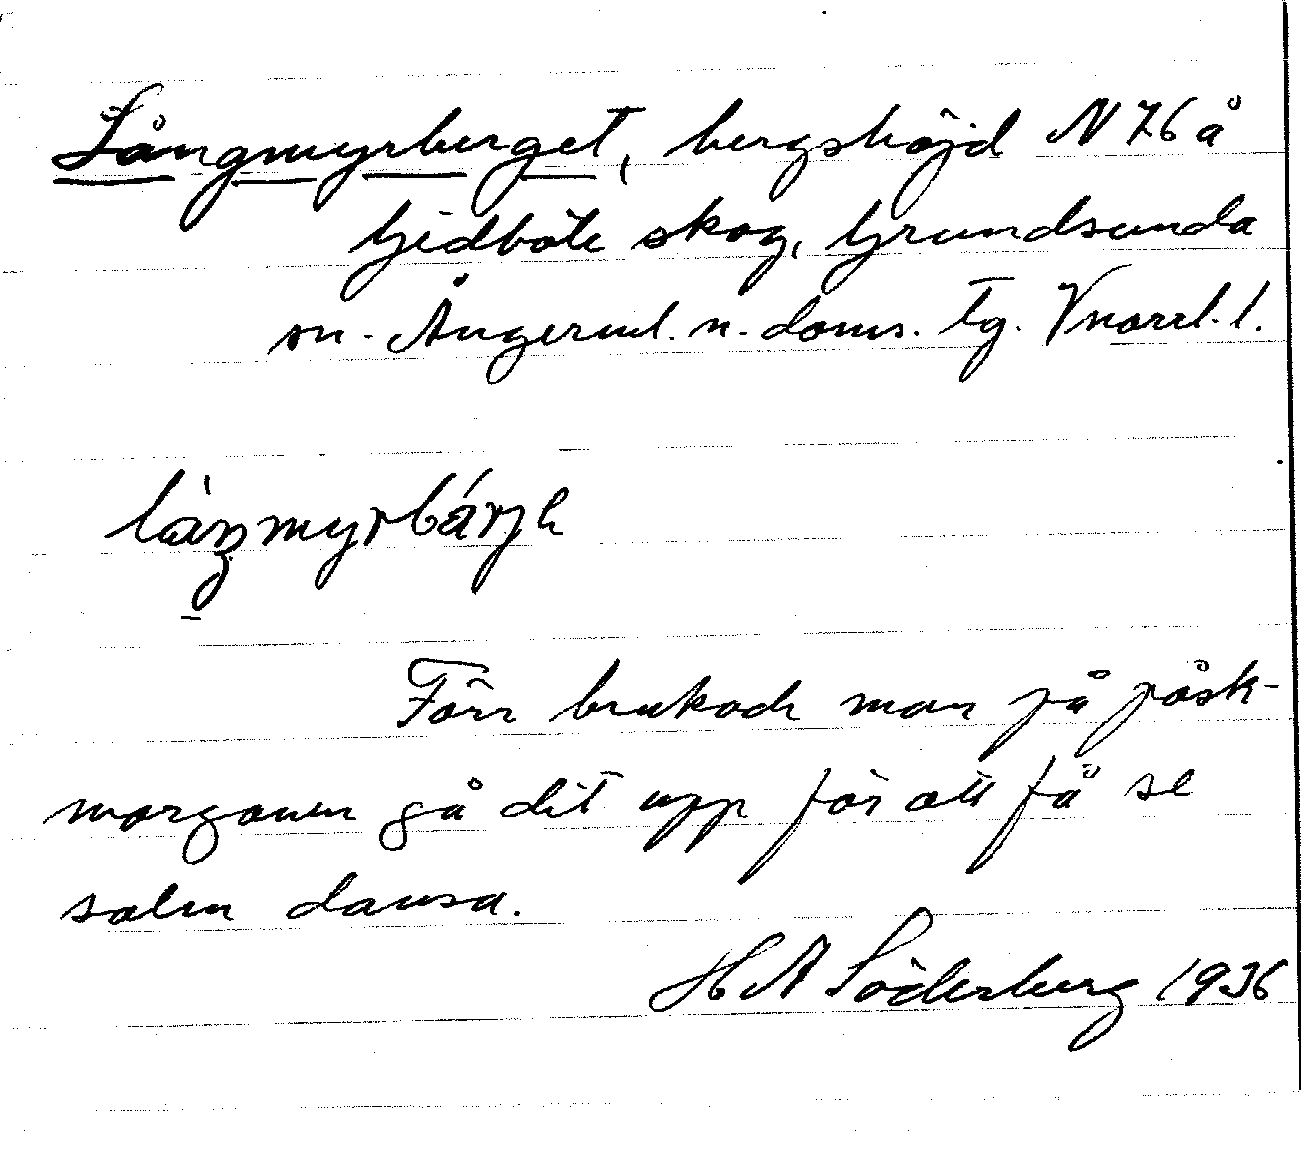 Långmyrberget, bergshöjd N 76 å
Gidböle skog, Grundsunda
sn. Ångerml. n. doms. tg. Vnorrl. l.
Förr brukade man på påsk-
morgonen gå dit upp för att få se
solen dansa.
H A Söderberg 1936